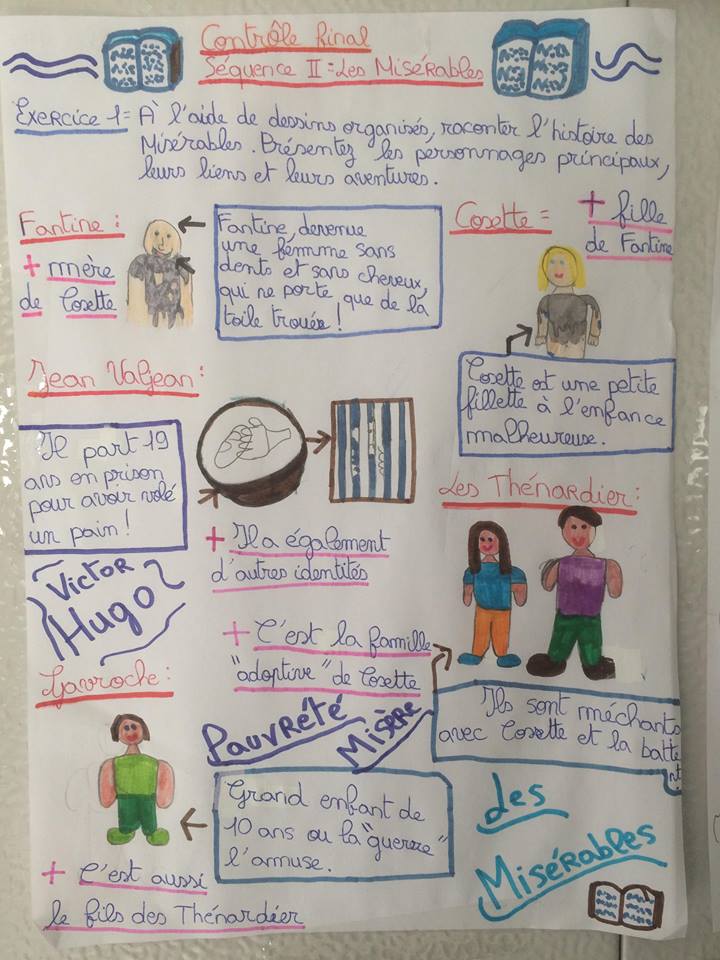 Contrôle final
Séquence II = Les Misérables
Exercice 1 = À l'aide de dessins organisés, raconter l'histoire des
Misérables. Présentez les personnages principaux,
leurs liens et leurs aventures.
Fantine :
+ mère
de Cosette
Fantine, devenue
une femme sans
dents et sans cheveux,
qui ne porte que de la
toile trouée !
Cosette =
+ fille
de Fantine
Cosette est une petite
fillette à l'enfance
malheureuse.
Jean Valjean :
Il part 19
ans en prison
pour avoir volé
un pain !
+ Il a également
d'autres identités
Les Thénardier :
+ C'est la famille
"adoptive" de Cosette
Ils sont méchants
avec Cosette et la batte
nt.
Victor
Hugo
Gavroche :
Pauvrété
Misère
Grand enfant de
10 ans ou la "guerre"
l'amuse.
+ C'est aussi
le fils des Thénardier
Les
Misérables